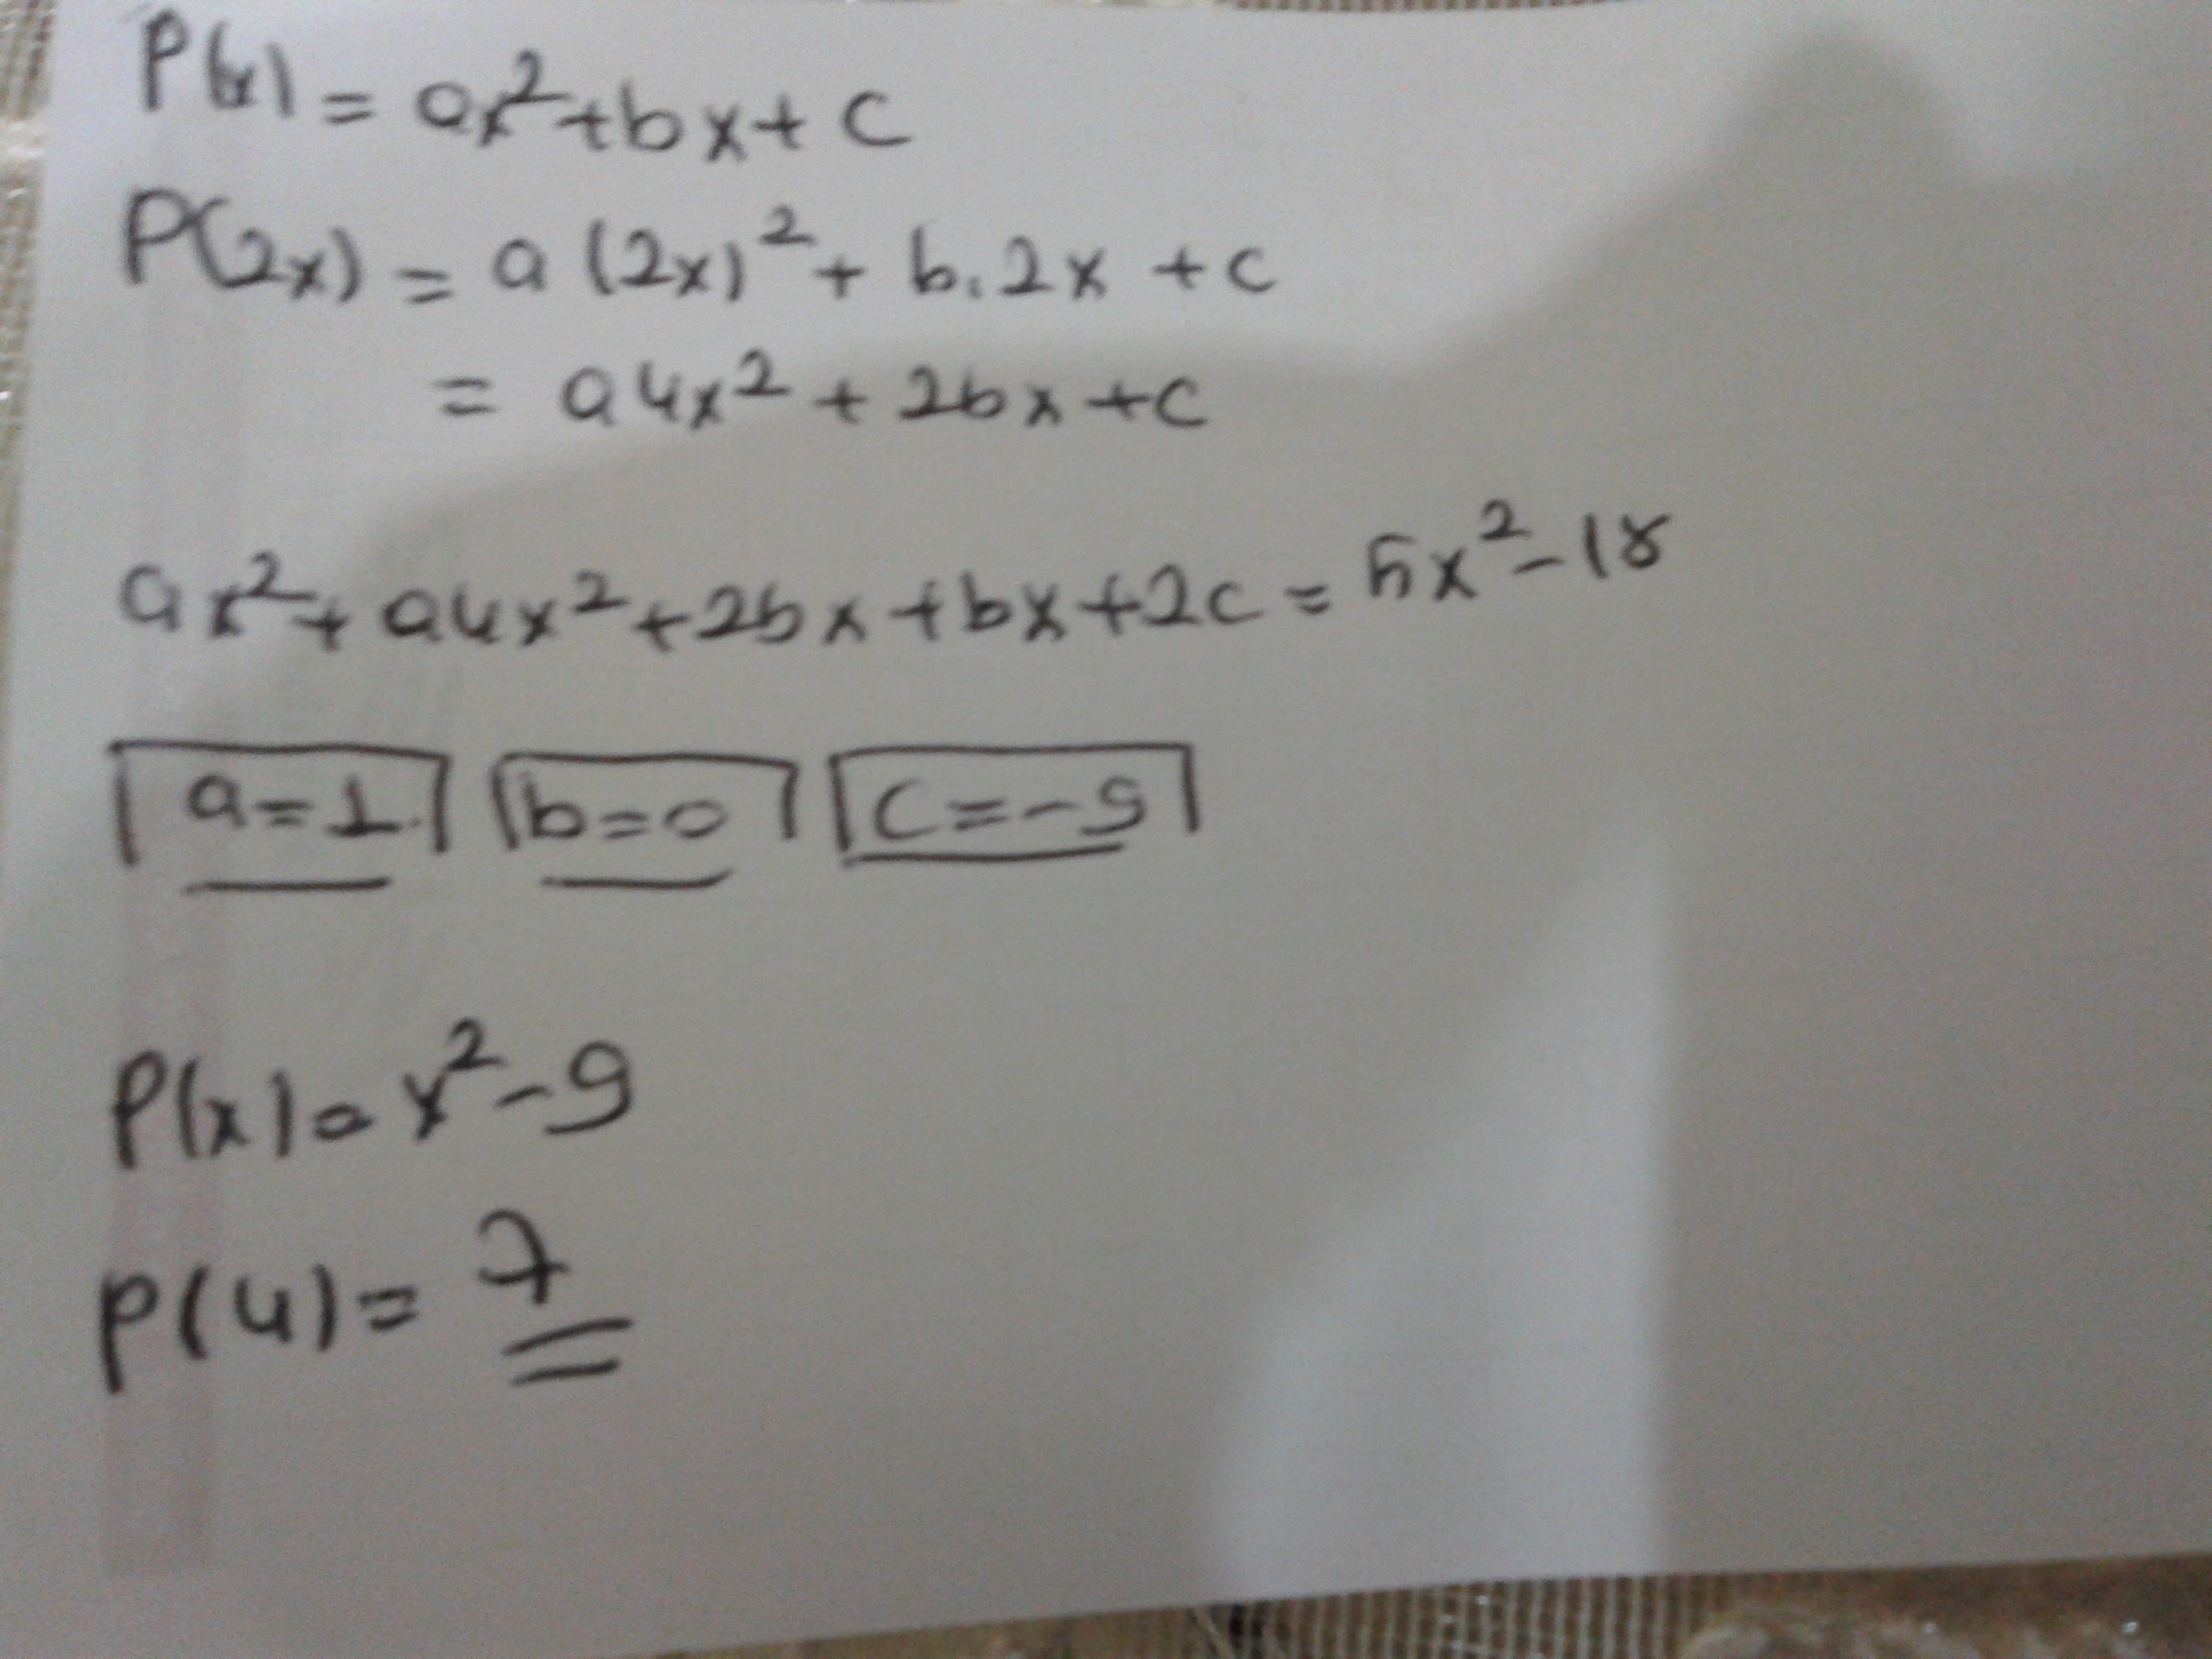 P(x) = ax²+bx+c
P(2x) = a(2x)² + b.2x +c
= a4x² + 2bx +c
ax²+a4x²+2bx+bx+2c = 5x²-18
a=1 b=0 c=-9
P(x) = x²-9
P(4) = 7